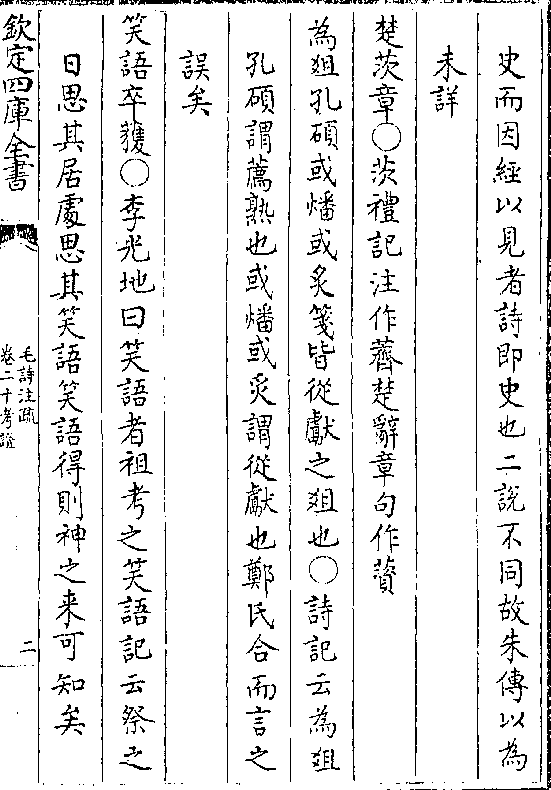 史而因經以見者詩即史也二說不同故朱傳以為
未詳
楚茨章○茨禮記注作薺楚辭章句作薋
為爼孔碩或燔或炙箋皆從獻之爼也○詩記云為爼
孔碩謂薦熟也或燔或炙謂從獻也鄭氏合而言之
誤矣
笑語卒獲○李光地曰笑語者祖考之笑語記云祭之
日思其居處思其笑語笑語得則神之来可知矣
欽定四庫全書
毛詩注疏
卷二十考證
二